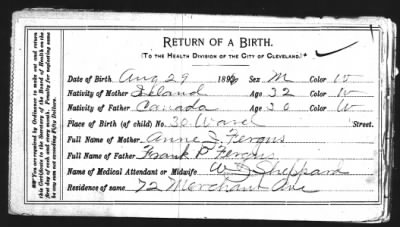 RETURN OF A BIRTH.
(TO THE HEALTH DIVISION OF THE CITY OF CLEVELAND.)
Date of Birth Aug 29 189 Sex M Color W
Nativity of Mother Ireland Age 32 Color W
Nativity of Father Canada Age 30 Color W
Place of Birth (of child) No. 30 Ward Street.
Full Name of Mother Anne Fergus
Full Name of Father Frank P Fergus
Name of Medical Attendant or Midwife W Sheppard
Residence of same 72 Merchant Ave
You are required by Ordinance to make out and return
this Certificate to the Secretary of the Board of Health on the
first day of each and every month. Penalty for neglecting
same not exceeding Fifty Dollars.